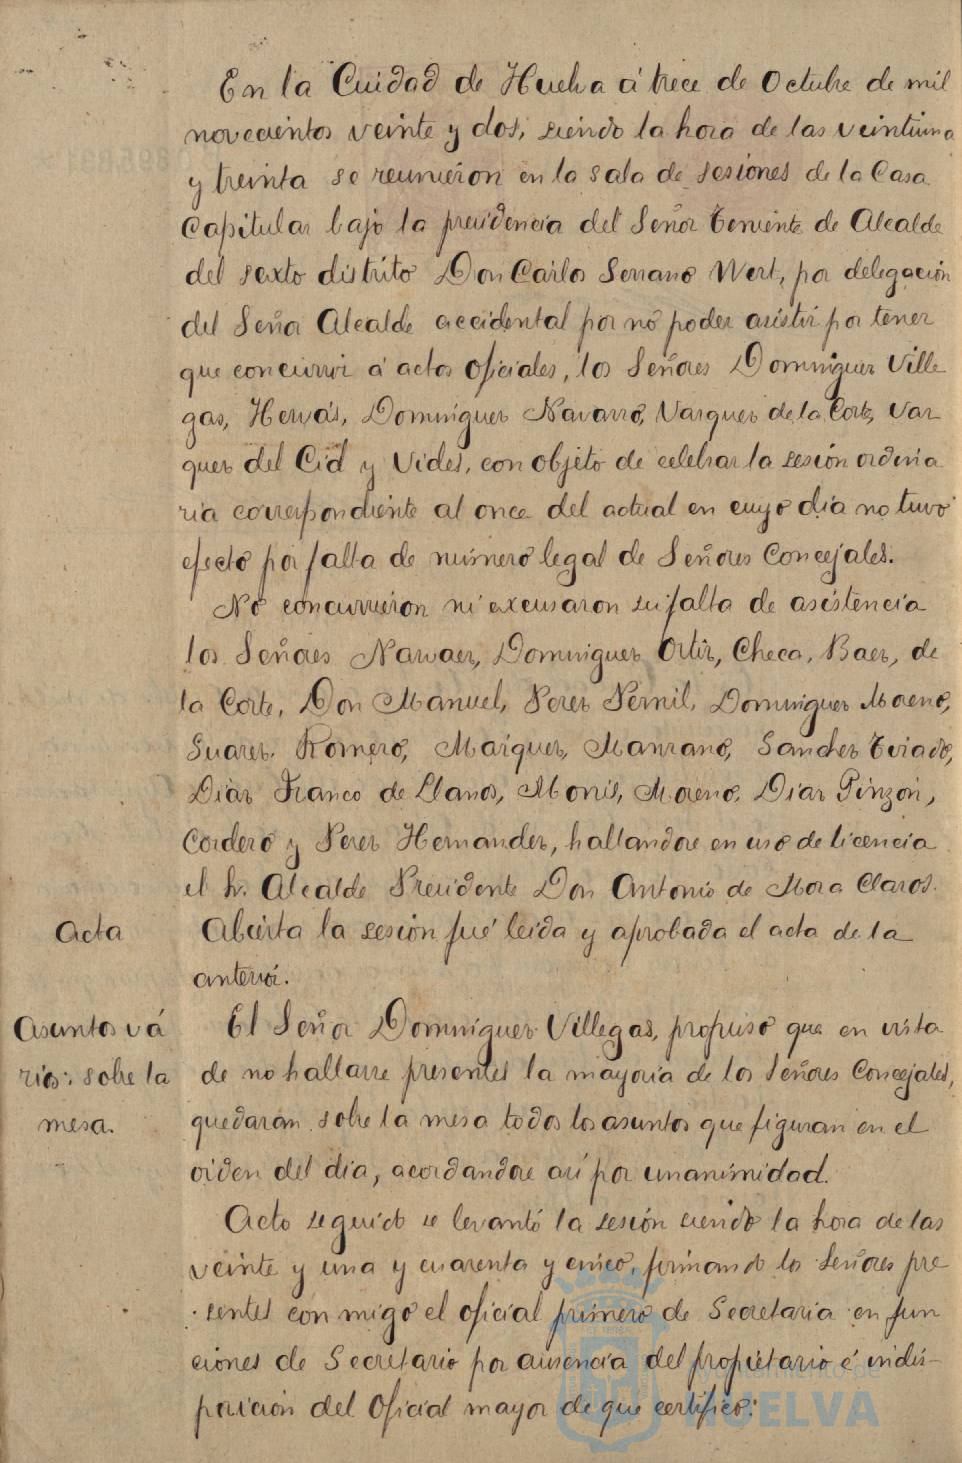 En la Cuidad de Huelva á trece de Octubre de mil
novecientos veinte y dos, siendo la hora de las veintiuna
y treinta se reunieron en la sala de sesiones de la Casa
Capitular bajo la presidencia del Señor Teniente de Alcalde
del sexto distrito Don Carlos Serrano Wert, por delegación
del Señor Alcalde accidental por no poder asistir por tener
que concurrir á actos oficiales, los Señores Dominguez Ville
gas, Hervás, Dominguez Navarro, Vazquez de la Corte, Vaz
quez del Cid y Vides, con objeto de celebrar la sesión ordina
ria correspondiente al once del actual en cuyo dia no tuvo
efecto por falta de número legal de Señores Concejales.
No concurrieron ni excusaron su falta de asistencia
los Señores Narvaez, Dominguez Ortiz, Checa, Baez, de
la Corte, Don Manuel, Perez Pernil, Dominguez Moreno,
Suarez, Romero, Marquez, Manzano, Sanchez Tviado,
Diaz Franco de Llanos, Monís, Moreno, Diaz Pinzón,
Cordero y Perez Hernandez, hallandose en uso de licencia
el Sr. Alcalde Presidente Don Antonio de Mora Claros.
Acta
Abierta la sesión fué leida y aprobada el acta de la
anterior.
Asuntos vá
rios: sobre la
mesa.
El Señor Dominguez Villegas, propuso que en vista
de no hallarse presentes la mayoria de los Señores Concejales,
quedaran sobre la mesa todos los asuntos que figuran en el
orden del dia, acordandose así por unanimidad.
Acto seguido se levantó la sesión siendo la hora de las
veinte y una y cuarenta y cinco, firmando los Señores pre
sentes con migo el oficial primero de Secretaria en fun
ciones de Secretario por ausencia del propietario é indis-
posicion del Oficial mayor de que certifico:
Ayuntamiento de
HUELVA